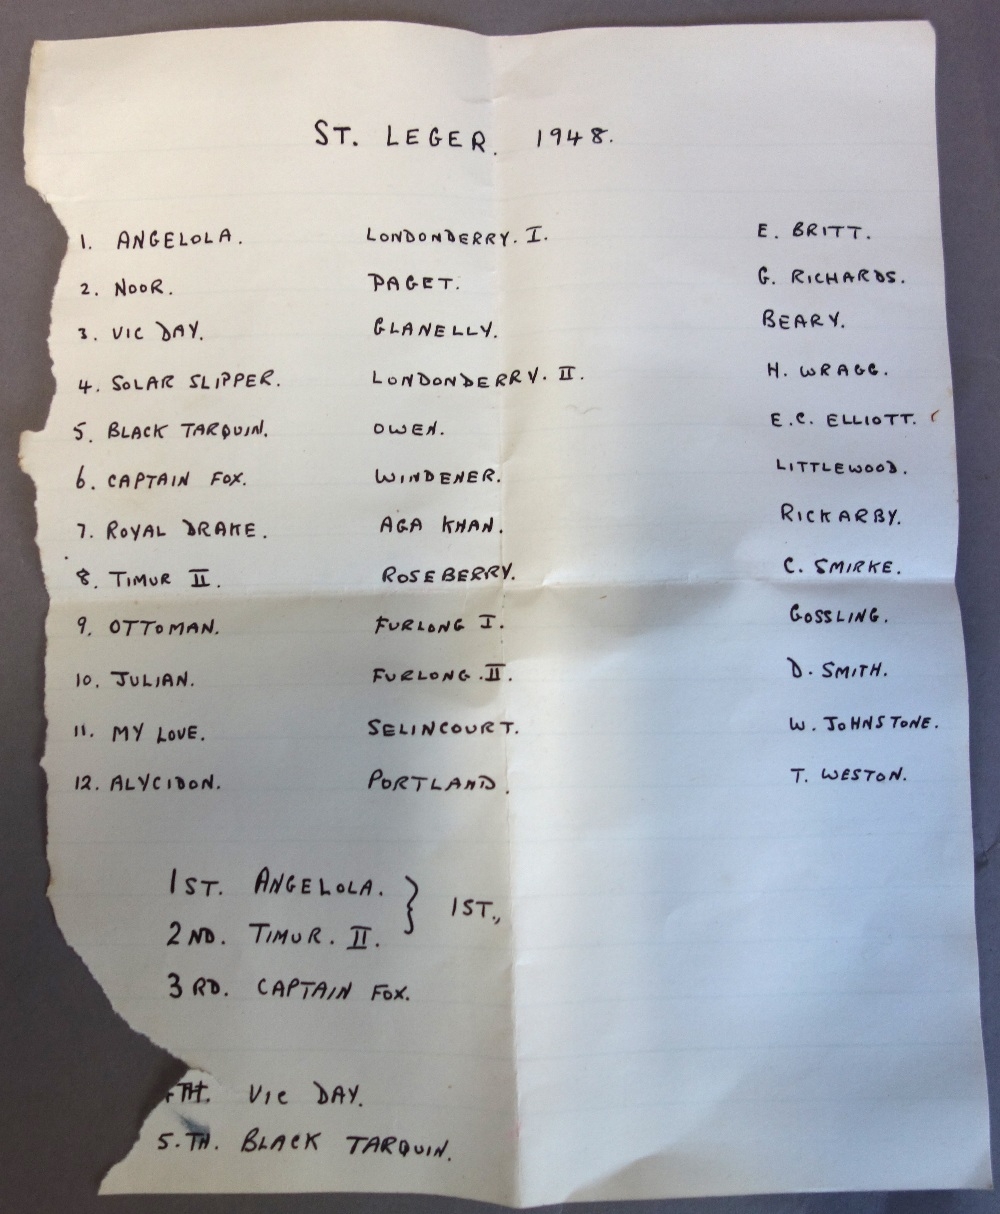 ST. LEGER. 1948.
1. ANGELOLA. LONDONDERRY. I. E. BRITT.
2. NOOR. PAGET. G. RICHARDS.
3. VIC DAY. GLANELLY. BEARY.
4. SOLAR SLIPPER. LONDONDERRY. II. H. WRAGG.
5. BLACK TARQUIN. OWEN. E.C. ELLIOTT.
6. CAPTAIN FOX. WINDENER. LITTLEWOOD.
7. ROYAL DRAKE. AGA KHAN. RICKARBY.
8. TIMUR II. ROSEBERRY. C. SMIRKE.
9. OTTOMAN. FURLONG I. GOSSLING.
10. JULIAN. FURLONG. II. D. SMITH.
11. MY LOVE. SELINCOURT. W. JOHNSTONE.
12. ALYCIDON. PORTLAND. T. WESTON.
1ST. ANGELOLA. } 1ST.,
2ND. TIMUR. II.
3RD. CAPTAIN FOX.
TH. VIC DAY.
5.TH. BLACK TARQUIN.